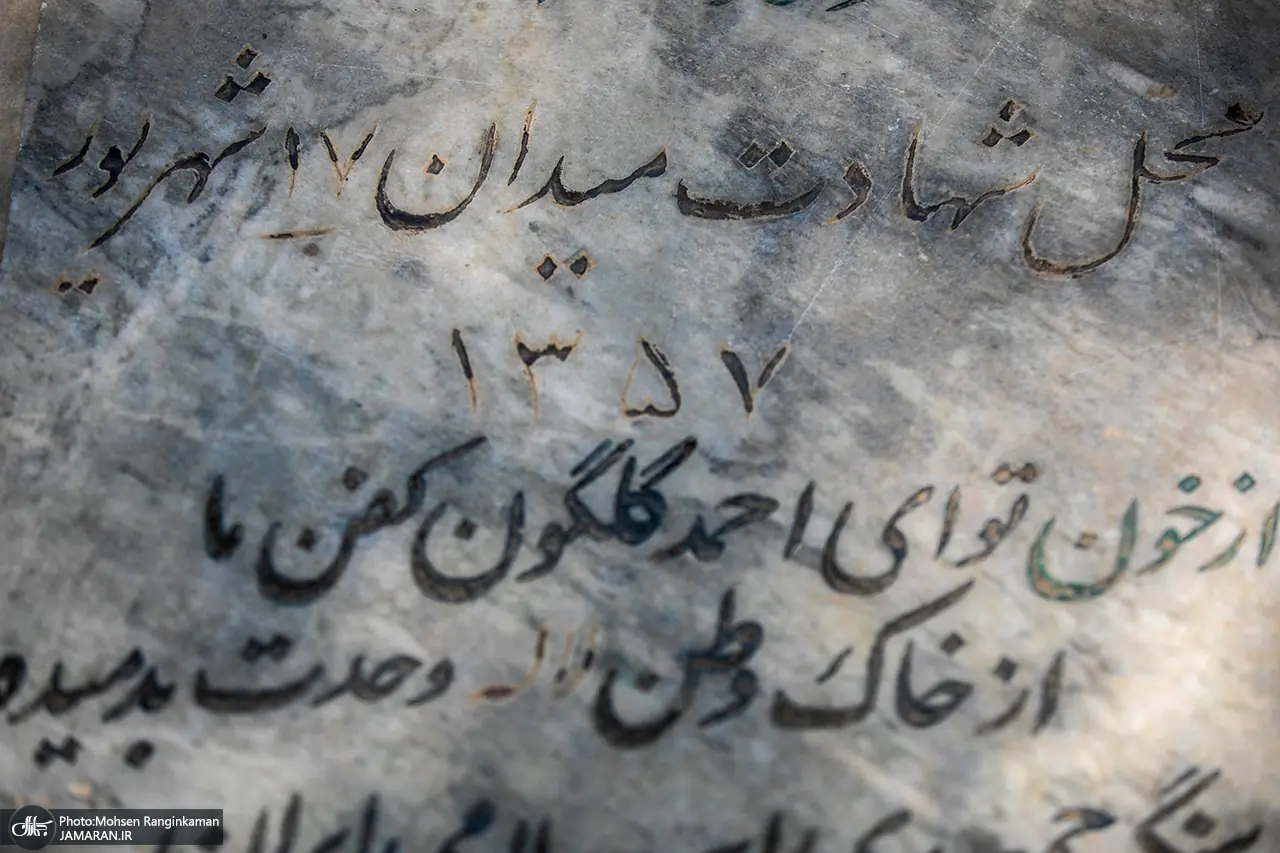 محل شهادت میدان ۱۷ شهریور
۱۳۵۷
از خون تو ای احمد گلگون کفن ما
از خاک وطن لاله وحدت بدمیده
Photo:Mohsen Ranginkaman
JAMARAN.IR